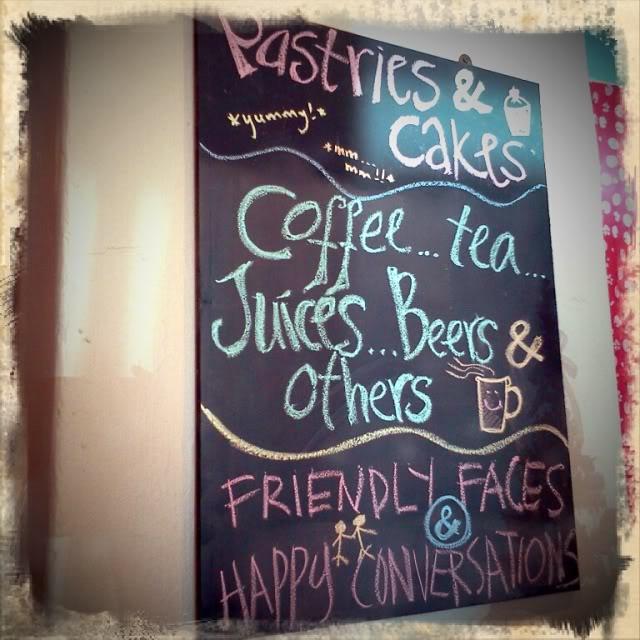 Pastries &
*yummy!*
cakes
*mm....
mm!!*
Coffee... tea...
Juices... Beers &
others
FRIENDLY FACES
&
HAPPY CONVERSATIONS